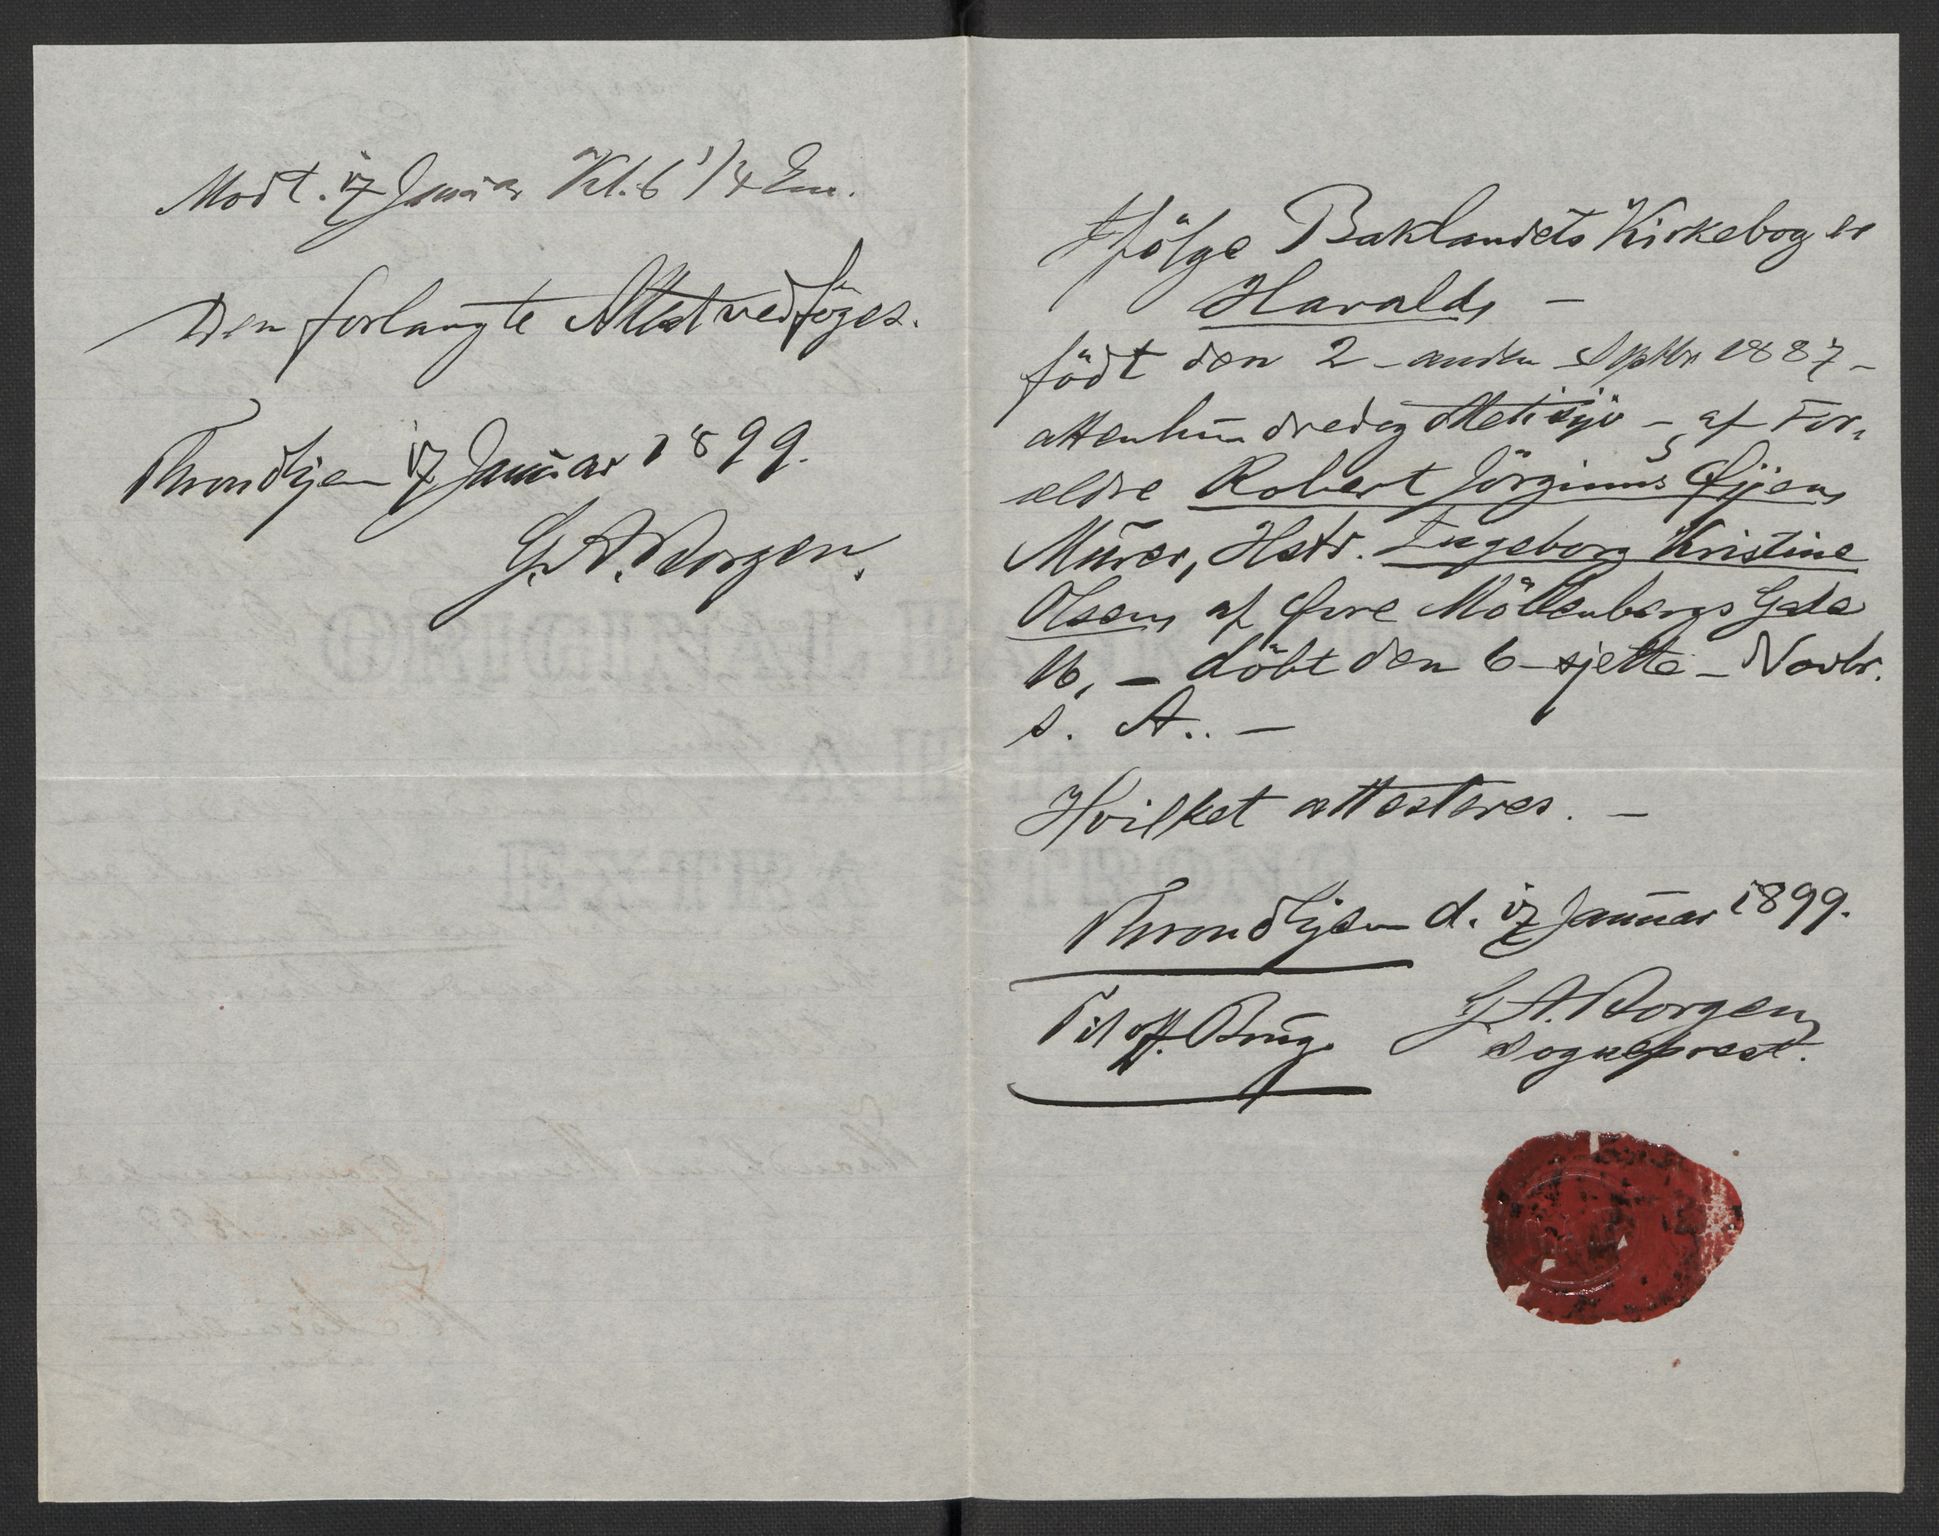 Modt. 17 Januar Kl. 6 1/4 Em.
Den forlangte Attest vedføges.
Throndhjem 17 Januar 1899.
G. A. Borgen.
Ifölge Baklandets Kirkebog er
Harald, —
födt den 2 - anden Septbr 1887 -
attenhundredeog ottetisyv - af For-
ældre Robert Jörginus Öyen,
Murer, Hstr. Ingeborg Kristine
Olsen, af Øvre Möllenbergs Gade
16, - döbt den 6 - sjette - Novbr.
s. A.. —
Hvilket attesteres. —
Throndhjem d. 17 Januar 1899.
Til off. Brug.
G. A. Borgen,
Sogneprest.